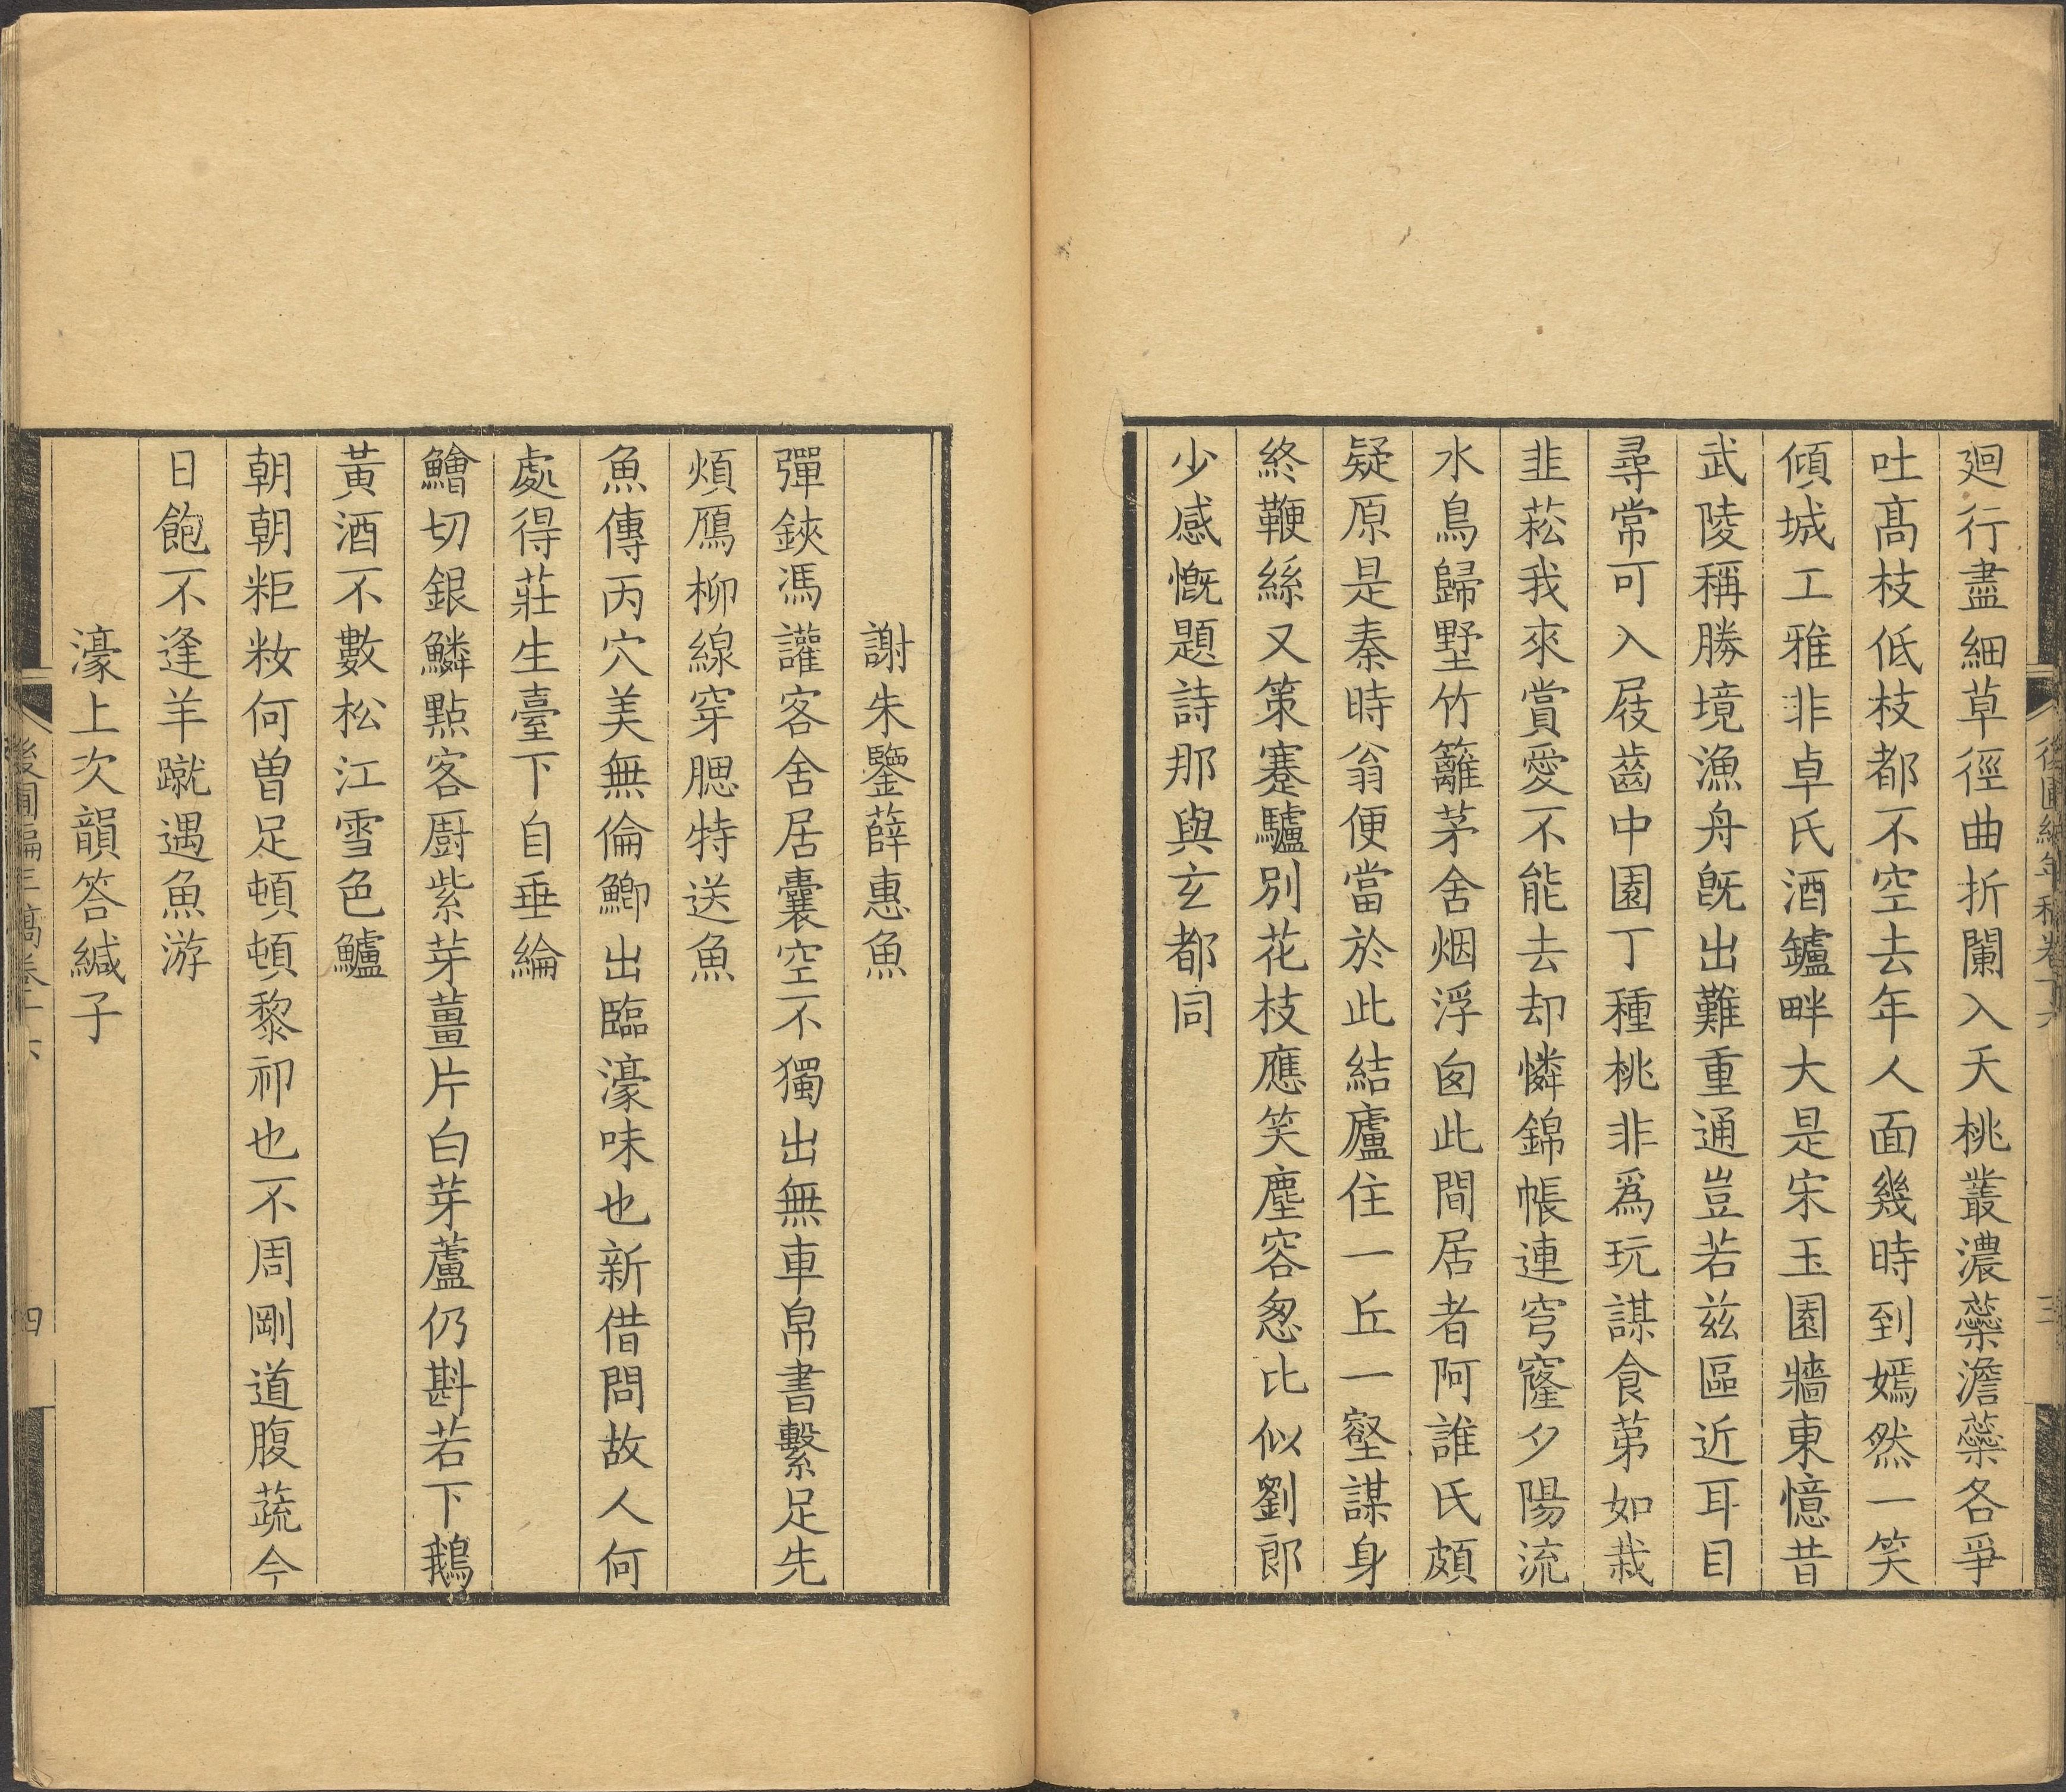 廻行盡細草徑曲折闌入夭桃叢濃蘂澹蘂各爭
吐髙枝低枝都不空去年人面幾時到嫣然一笑
傾城工雅非卓氏酒鑪畔大是宋玉園牆東憶昔
武陵稱勝境漁舟旣出難重通豈若玆區近耳目
尋常可入屐齒中園丁種桃非爲玩謀食苐如栽
韭菘我來賞愛不能去却憐錦帳連穹窿夕陽流
水鳥歸墅竹籬茅舍烟浮囱此間居者阿誰氏頗
疑原是秦時翁便當於此結廬住一丘一壑謀身
終鞭絲又策蹇驢別花枝應笑塵容怱比似劉郎
少感慨題詩那與玄都同
後圃編年稿卷十六
三
謝朱鑒薛惠魚
彈鋏馮讙客舍居囊空不獨出無車帛書繫足先
煩鴈柳線穿腮特送魚
魚傳丙穴美無倫鯽出臨濠味也新借問故人何
處得莊生臺下自垂綸
鱠切銀鱗點客厨紫芽薑片白芽蘆仍斟若下鵝
黃酒不數松江雪色鱸
朝朝粔籹何曾足頓頓黎祁也不周剛道腹蔬今
日飽不逢羊蹴遇魚游
濠上次韻答緘子
後圃編年稿卷十六
四